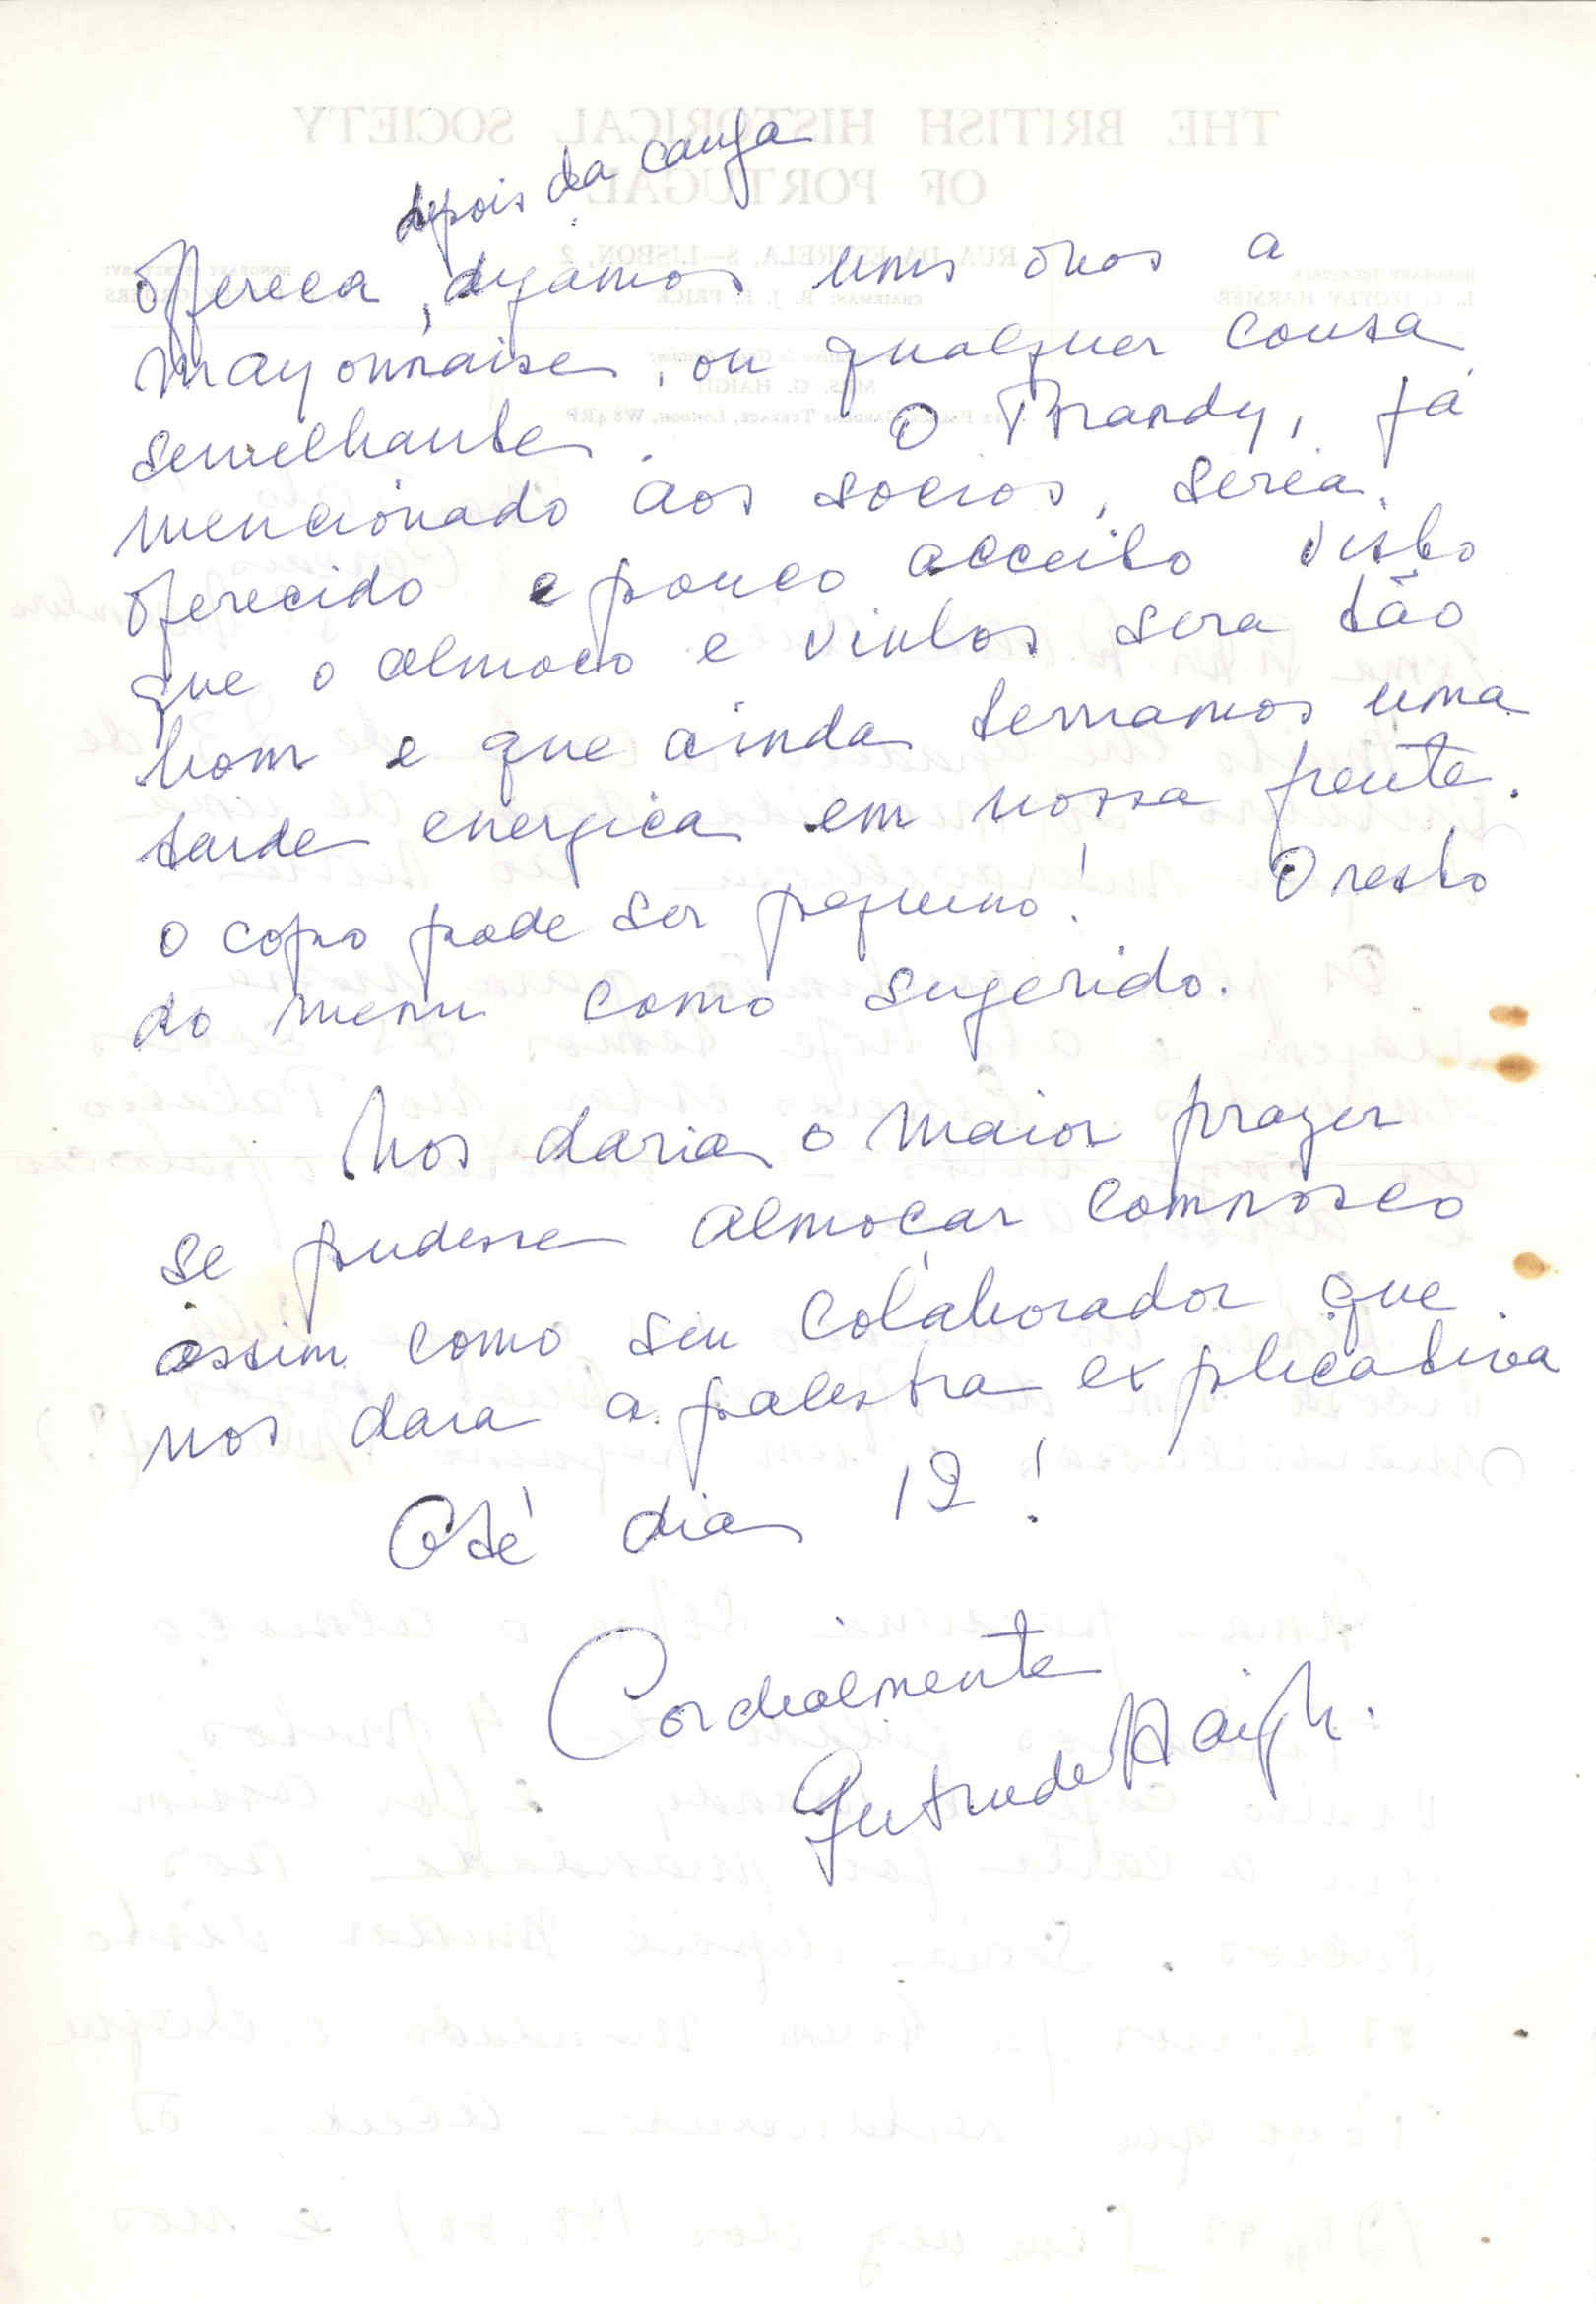 depois da canja
offereca, dejamos uns ovos a
mayonnaise, ou qualquer cousa
semelhante. O Brandy, já
mencionado aos socios, seria
oferecido e pouco acceito visto
que o almoco e vinhos sera tão
bom e que ainda terramos uma
tarde energica em nossa frente.
O copo pode ser pequeno! O resto
do menu como sugerido.
Nos daria o maior prazer
se pudesse almoçar comnosco
assim como seu colaborador que
nos dara a palestra explicativa
Até dia 12!
Cordealmente
Gertrude Haigh.